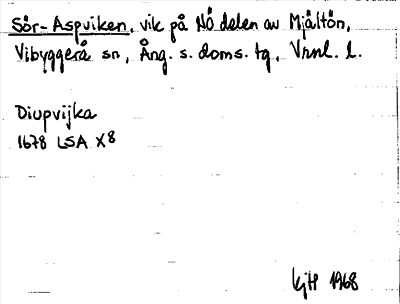 Sör-Aspviken, vik på NÖ delen av Mjältön,
Vibyggerå sn, Ång. s. doms. tg, Vrnl. l.
Diupvijka
1678 LSA X8
kjH 1968